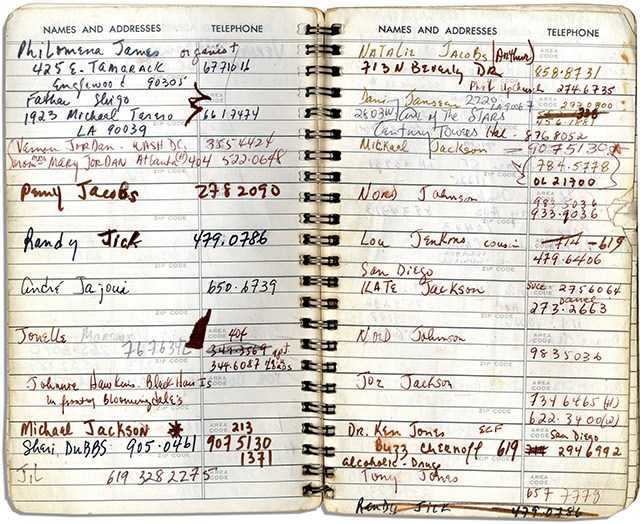 NAMES AND ADDRESSES TELEPHONE
Philomena James organist
425 E. Tamarack 6771016
Englewood 90305
Father Shigo
1923 Michael Tareno 661 7474
LA 90039
Vernon JORDAN - WASH DC. 355 4424
MARY JORDAN Atlanta 404 522.0648
Penny Jacobs 278 2090
Randy Jick 479.0786
André Jajoui 650.6739
Jonelle 404
767634
344.6087
Johnnie Hawkins. Black Hair Is
in front of Bloomingdale's
Michael Jackson * 213
Sheri DUBBS 905.0461 907 5130
1371
JiL 619 328 2275
NAMES AND ADDRESSES TELEPHONE
NATALIE JACOBS (Arthur)
713 N Beverly DR. 858.8731
Phil Upchurch 274 6735
Danny Janssen 2220 LA 90067
AVE of the STARS
Century Towers 876 8052
Michael Jackson 907 5130
(784.5778)
Nord Johnson 983 5036
933.9036
Lou Jenkins cousin 714 - 619
479.6406
San Diego
KATE Jackson 275 6064
273.2663
Nord Johnson
983 5036
Joe Jackson
734 6465 (H)
622.3400 (W)
Dr. Ken Jones SCF San Diego
Buzz Chernoff 619 294 6992
alcoholic - Drugs
Tony Jones
657 7779
Randy Jick 479.0786